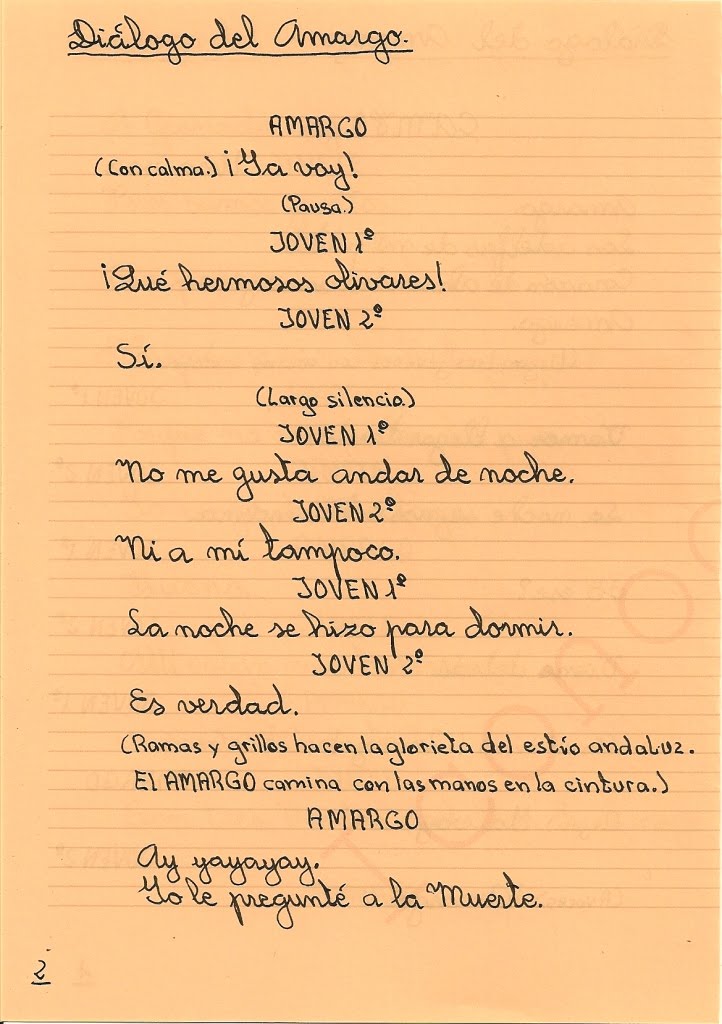 Diálogo del Amargo.
AMARGO
(Con calma.) ¡Ya voy!
(Pausa.)
JOVEN 1º
¡Qué hermosos olivares!
JOVEN 2º
Sí.
(Largo silencio.)
JOVEN 1º
No me gusta andar de noche.
JOVEN 2º
Ni a mí tampoco.
JOVEN 1º
La noche se hizo para dormir.
JOVEN 2º
Es verdad.
(Ramas y grillos hacen la glorieta del estío andaluz.
El AMARGO camina con las manos en la cintura.)
AMARGO
Ay yayayay.
Yo le pregunté a la Muerte.
2